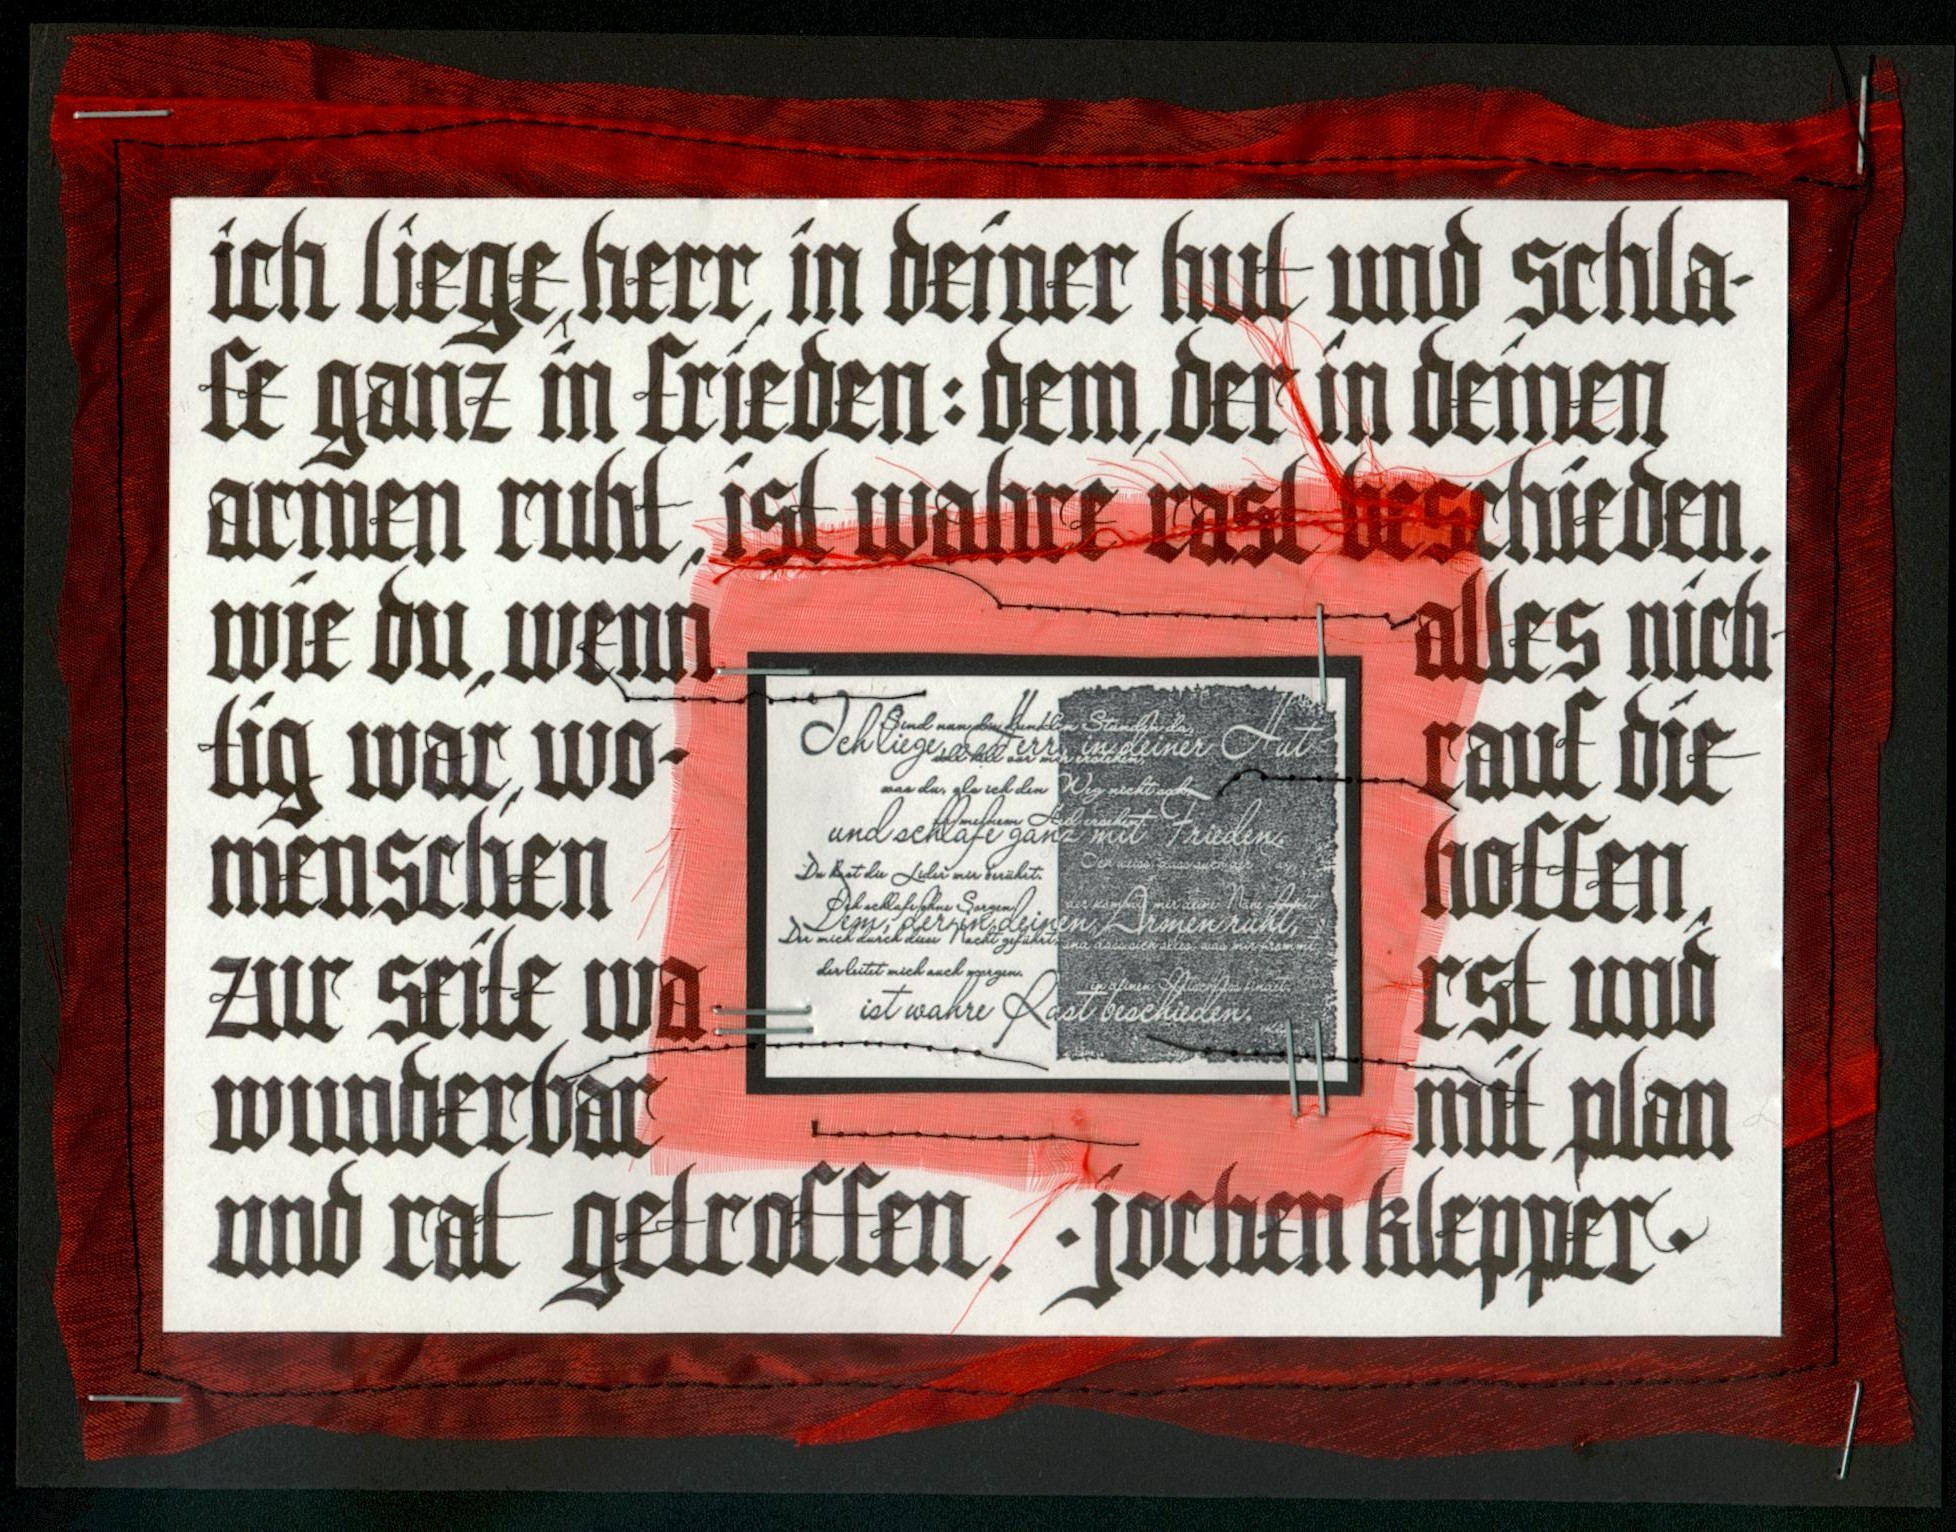 ich liege, herr, in deiner hut und schla-
fe ganz in frieden: dem, der in deinen
armen ruht, ist wahre rast beschieden.
wie du, wenn alles nich-
tig war, wo- rauf die
menschen hoffen,
zur seite wa rst und
wunderbar mit plan
und rat getroffen. ·jochen klepper·
Sind nun die dunklen Stunden da,
Ich liege, Herr, in deiner Hut
was du, als ich den Weg nicht sah,
und schlafe ganz mit Frieden.
Du hast die Lider mir berührt.
Ich schlafe ohne Sorgen.
Dem, der in deinen Armen ruht,
Der mich durch diese Nacht geführt,
der leitet mich auch morgen.
ist wahre Rast beschieden.